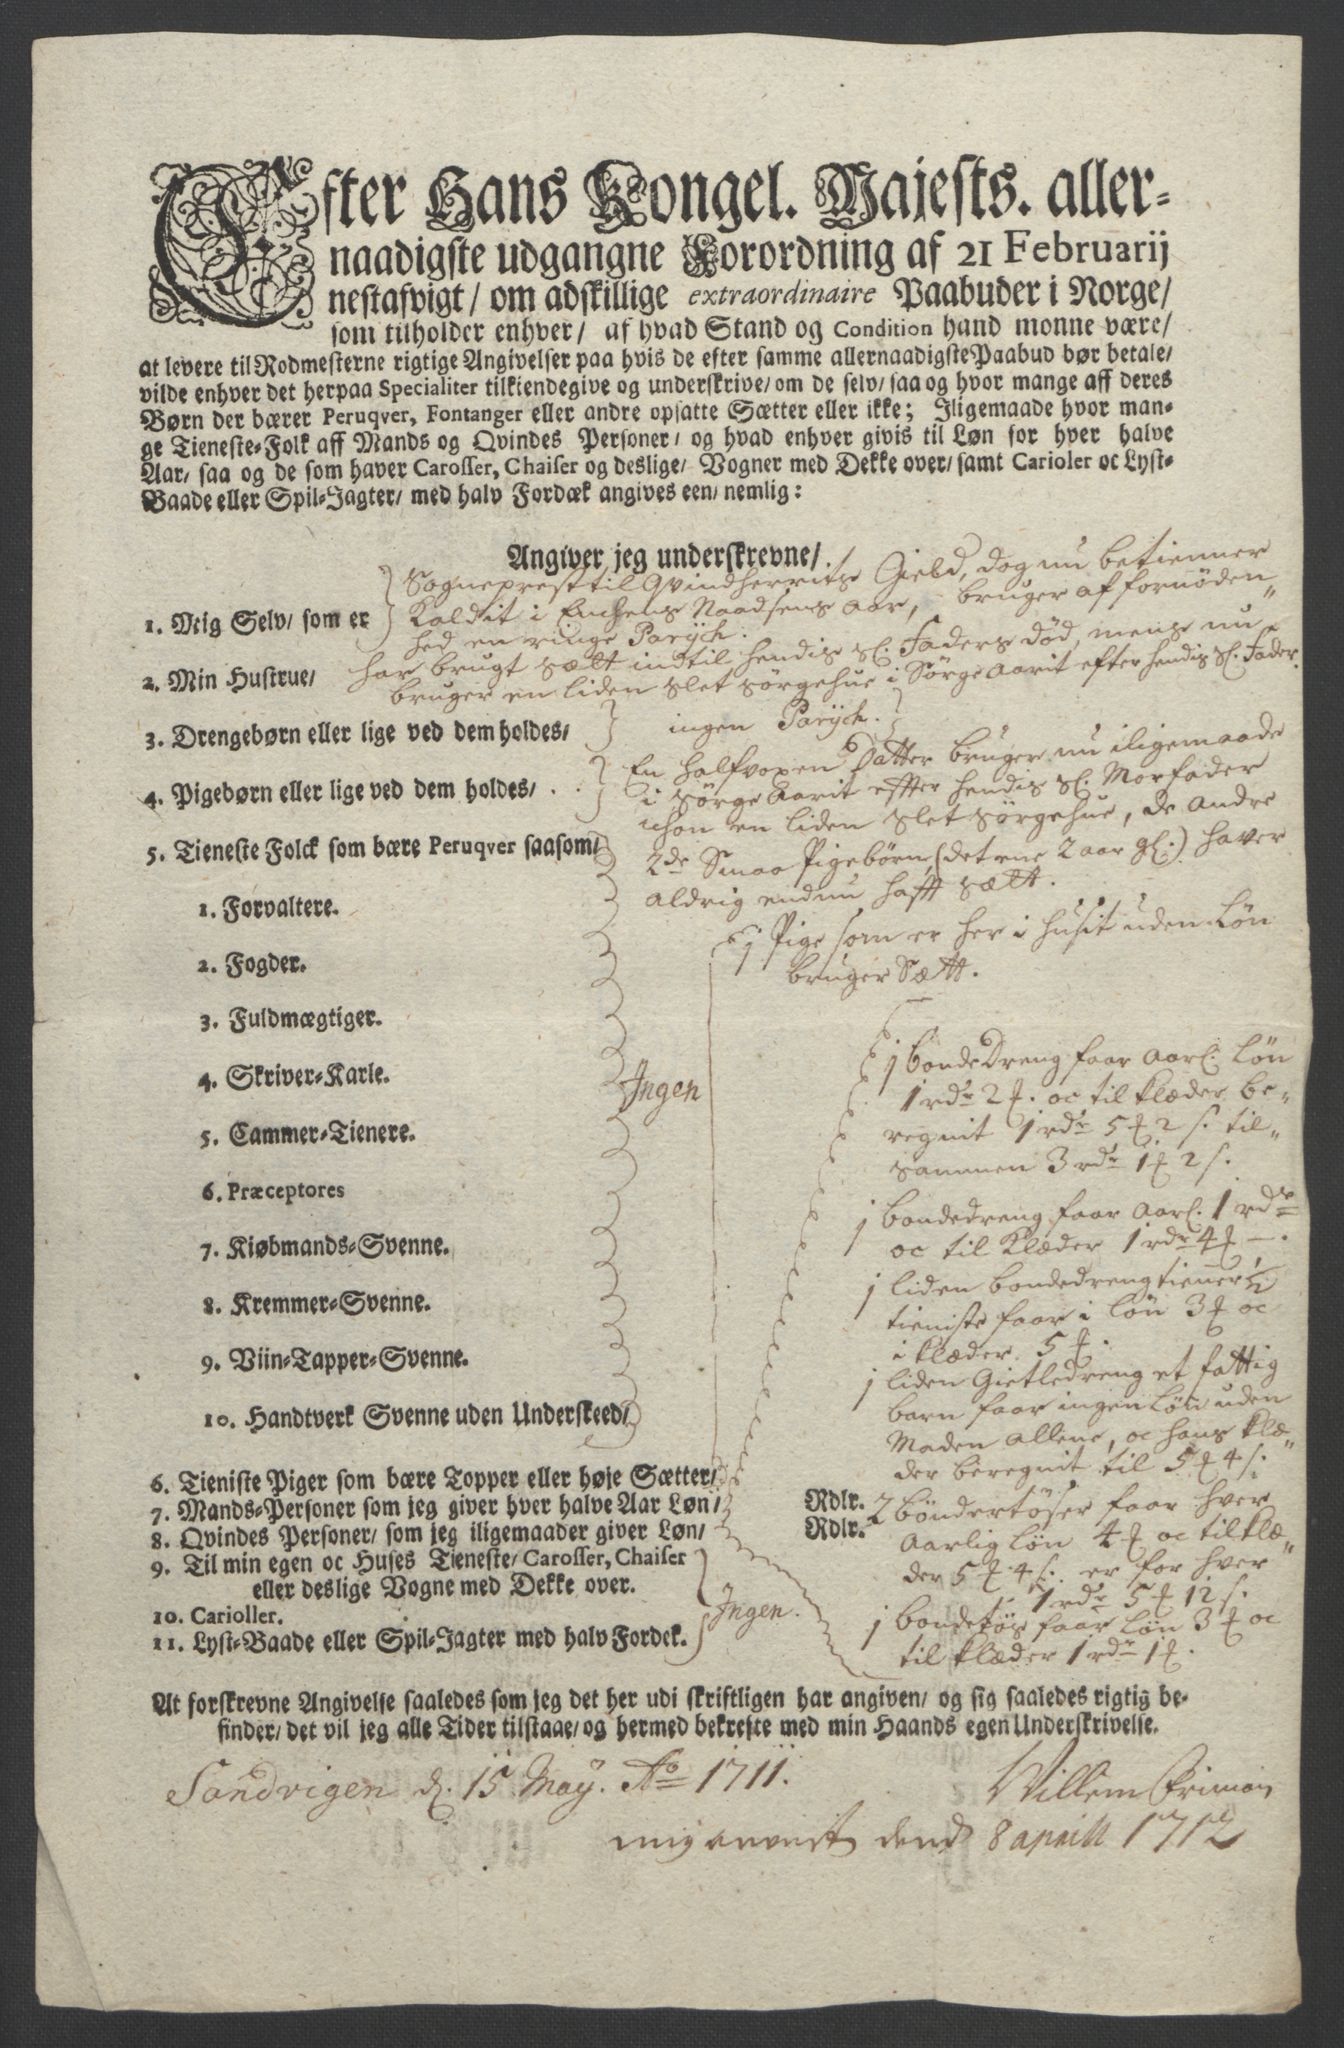 Efter Hans Kongel. Majests. aller-
naadigste udgangne Forordning af 21 Februarij
nestafvigt/ om adskillige extraordinaire Paabuder i Norge/
som tilholder enhver/ af hvad Stand og Condition hand monne være/
at levere til Rodmesterne rigtige Angivelser paa hvis de efter samme allernaadigste Paabud bør betale/
vilde enhver det herpaa Specialiter tilkiendegive og underskrive/ om de selv/ saa og hvor mange aff deres
Børn der bærer Peruqver, Fontanger eller andre opsatte Sætter eller ikke; Iligemaade hvor man-
ge Tieneste-Folk aff Mands og Qvindes Personer/ og hvad enhver givis til Løn for hver halve
Aar/ saa og de som haver Carosser, Chaiser og deslige/ Vogner med Dekke over/ samt Carioler oc Lyst-
Baade eller Spil-Jagter/ med halv Fordæk angives een/ nemlig:
Angiver jeg underskrevne/
Sogneprest til Qvindherrits Gield, dog nu betienner
1. Mig Selv/ som er Kaldit i Enchens Naadsens aar, bruger af fornöden"
hed en ringe Parÿch.
2. Min Hustrue/ har brugt sælt indtil hendis sl. Faders död, mens nu
bruger en liden slet sörgehue i Sörge Aarit efter hendis sl. Fader.
3. Drengebørn eller lige ved dem holdes/ ingen Parÿch.
En halfvoxen Datter bruger nu iligemaade
4. Pigebørn eller lige ved dem holdes/ . . i sörge Aarit effter hendis sl. Morfader
ichon en liden slet sörgehue, de andre
5. Tieneste Folck som bære Peruqver saasom/ 2de Smaa Pigebörn, (det ene 2 aar gl.) haver
aldrig endnu hafft sælt.
1. Forvaltere.
1 Pige som er her i husit uden Lön
2. Fogder. bruger Sætt.
3. Fuldmægtiger.
1 bonde Dreng faar Aarl. Lön
4. Skriver-Karle. Ingen
1 rdr 2 ₰. oc til klæder be-
5. Cammer-Tienere. regnit 1 rdr 5 ₰ 2 s. til-
sammen 3 rdr 1 ₰ 2 s.
6. Præceptores
1 bondedreng faar Aarl. 1 rdr
7. Kiøbmands-Svenne. oc til Klæder 1 rdr 4 ₰ —.
1 liden bondedreng tiener
8. Kremmer-Svenne. tieniste faar i lön 3 ₰ oc
i klæder 5 ₰.
9. Viin-Tapper-Svenne.
1 liden Gietledreng et fattig
10. Handtverk Svenne uden Underskeed/ barn faar ingen Lön uden
Maden allene, oc hans klæ"
der beregnit til 5 ₰ 4 s.
6. Tieniste Piger som bære Topper eller høje Sætter/
7. Mands-Personer som jeg giver hver halve Aar Løn/ Rdlr. 2 böndertöser faar hver
8. Qvindes Personer/ som jeg iligemaader giver Løn/ Rdlr. Aarlig lön 4 ₰ oc til klæ"
9. Til min egen oc Huses Tieneste/ Carosser, Chaiser der 5 ₰ 4 s. er for hver
eller deslige Vogne med Dekke over. 1 rdr 5 ₰ 12 s.
10. Carioller. Ingen. 1 bondetös faar Lön 3 ₰ oc
11. Lyst-Baade eller Spil-Jagter med halv Fordek. til klæder 1 rdr 1 ₰.
At forskrevne Angivelse saaledes som jeg det her udi skriftligen har angiven/ og sig saaledes rigtig be-
finder/ det vil jeg alle Tider tilstaae/ og hermed bekrefte med min Haands egen Underskrivelse.
Sandvigen d. 15 Maÿ. Ao 1711. Willem Friman
mig levert dend 8 aprill 1712